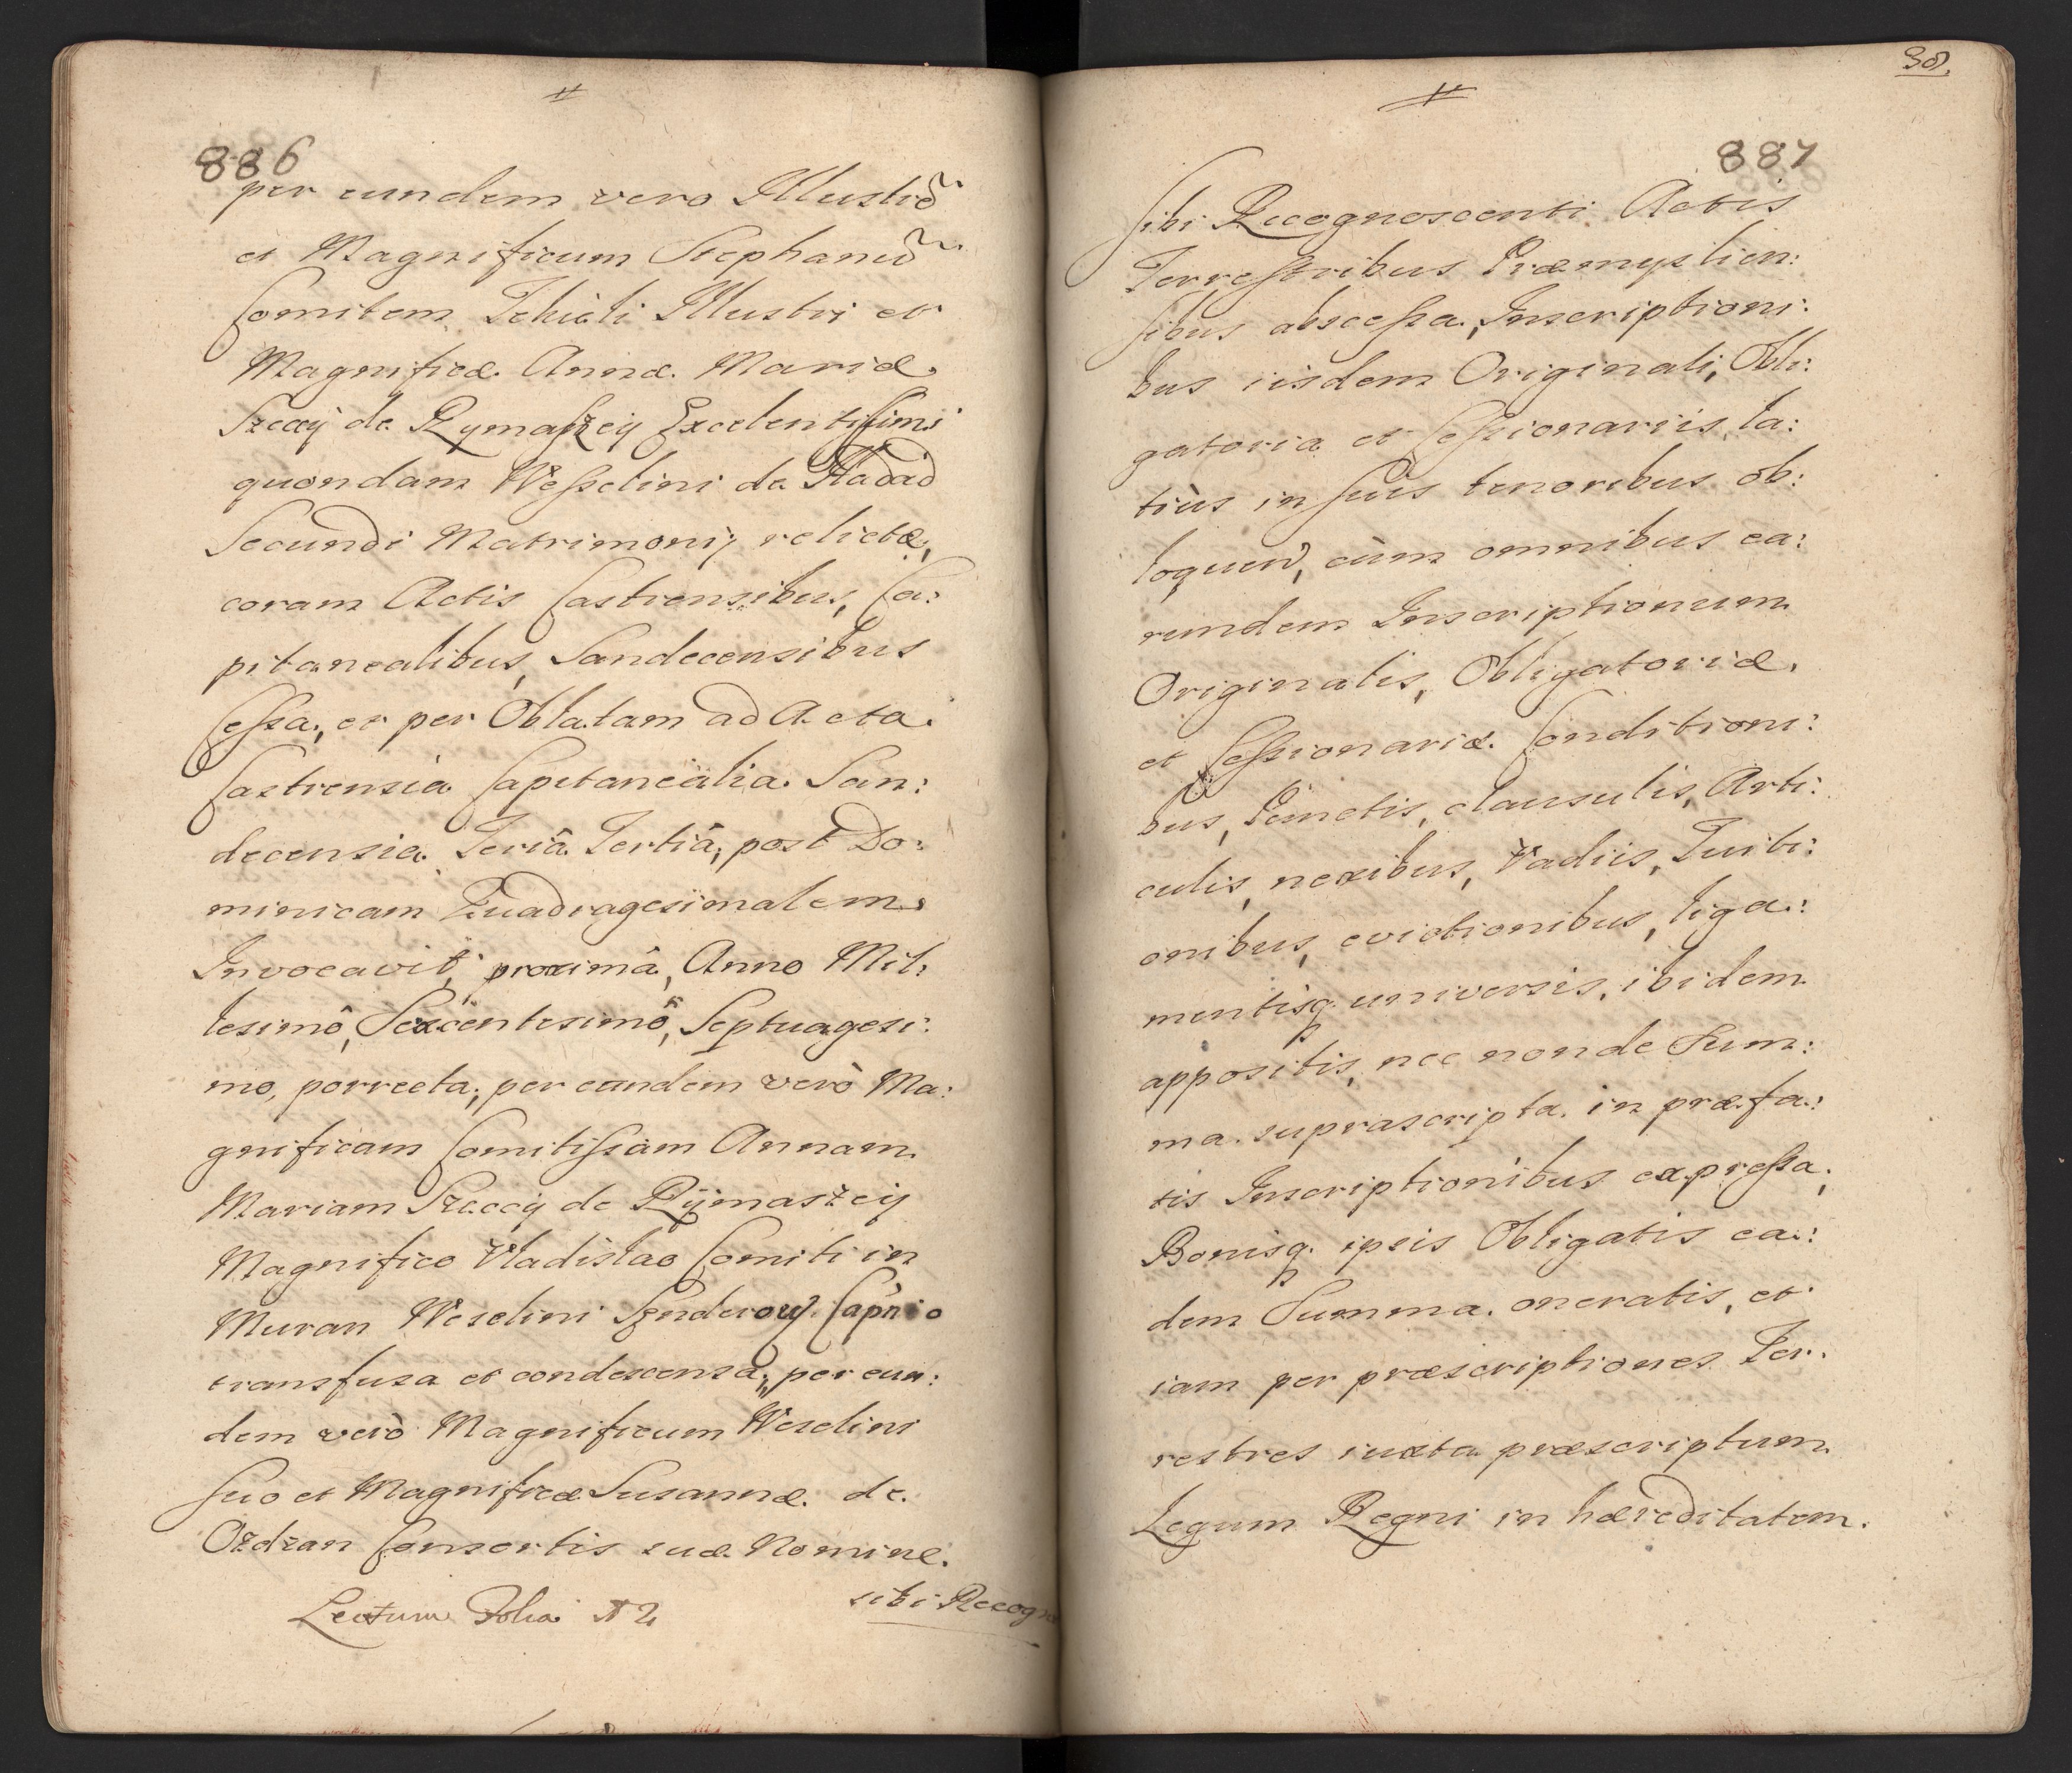 886
per eundem vero Illustrẽ
et Magnificum Stephanũ
Comitem Tekieli Illustri et
Magnificæ Annæ Mariæ
Szecÿ de Rymaszeÿ Excelentissimi
quondam Wesselini de Hadad
Secundi Matrimonÿ relictæ,
coram Actis Castrensibus, Ca:
pitanealibus, Sandecensibus
Cessa, et per Oblatam ad Acta
Castrensia Capitanealia San:
decensia Feriâ Tertiâ, post Do:
minicam Quadragesimalem
Invocavit, proximâ, Anno Mil:
lesimô, Sexcentesimô, Septuagesi:
mo, porrecta, per eandem verò Ma:
gnificam Comitissam Annam
Mariam Szeccÿ de Rÿmaszeÿ
Magnifico Vladislao Comiti in
Muran Weselini Capñ o
transfusa et condescensa, per eun:
dem verò Magnificum Weselini
suo et Magnificæ Susannæ de
Ozdzan Consortis suæ Nomine
Lectum Folia N 2
sibi Recogn
38.
887
sibi Recognoscenti Actis
Terrestribus Præmyslien:
sibus abscessa, Inscriptioni:
bus iisdem Originali, Obli:
gatoria et Cessionariis la:
tiùs in suis tenoribus ob:
loquen, cùm omnibus ea:
rundem Inscriptionum
Originalis, Obligatoriæ,
et Cessionariæ Conditioni:
bus, Punctis, clausulis, Arti:
culis, nexibus, Vadiis, Tuiti:
onibus, evictionibus, liga:
mentisq. universis, ibidem
appositis, nec non de Sum:
ma suprascripta in præfa:
tis Inscriptionibus expressa,
Bonisq. ipsis Obligatis ea:
dem Summa oneratis, et
iam per præscriptiones Ter:
restres iuxta præscriptum
Legum Regni in hæreditatem